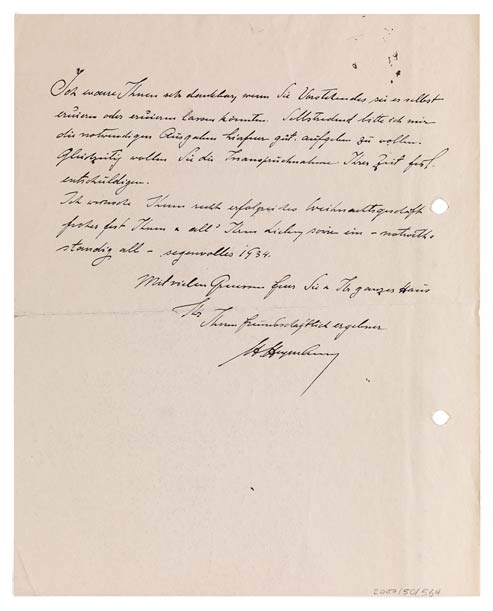 Ich waere Ihnen sehr dankbar, wenn Sie Vorstehendes sei es selbst
eruieren oder eruieren lassen könnten. Selbstredend bitte ich mir
die notwendigen Ausgaben hierfuer güt. aufgeben zu wollen.
Gleichzeitig wollen Sie die Inanspruchnahme Ihrer Zeit
entschuldigen.
Ich wünsche Ihnen recht erfolgreiches Weihnachtsgeschäft
frohes Fest Ihnen & all' Ihren Lieben, sowie ein -
ständig all - segenvolles 1934.
Mit vielen Gruessen fuer Sie & Ihr ganzes Haus
Ihr
Ihnen freundschaftlich ergebner
0007/50/564